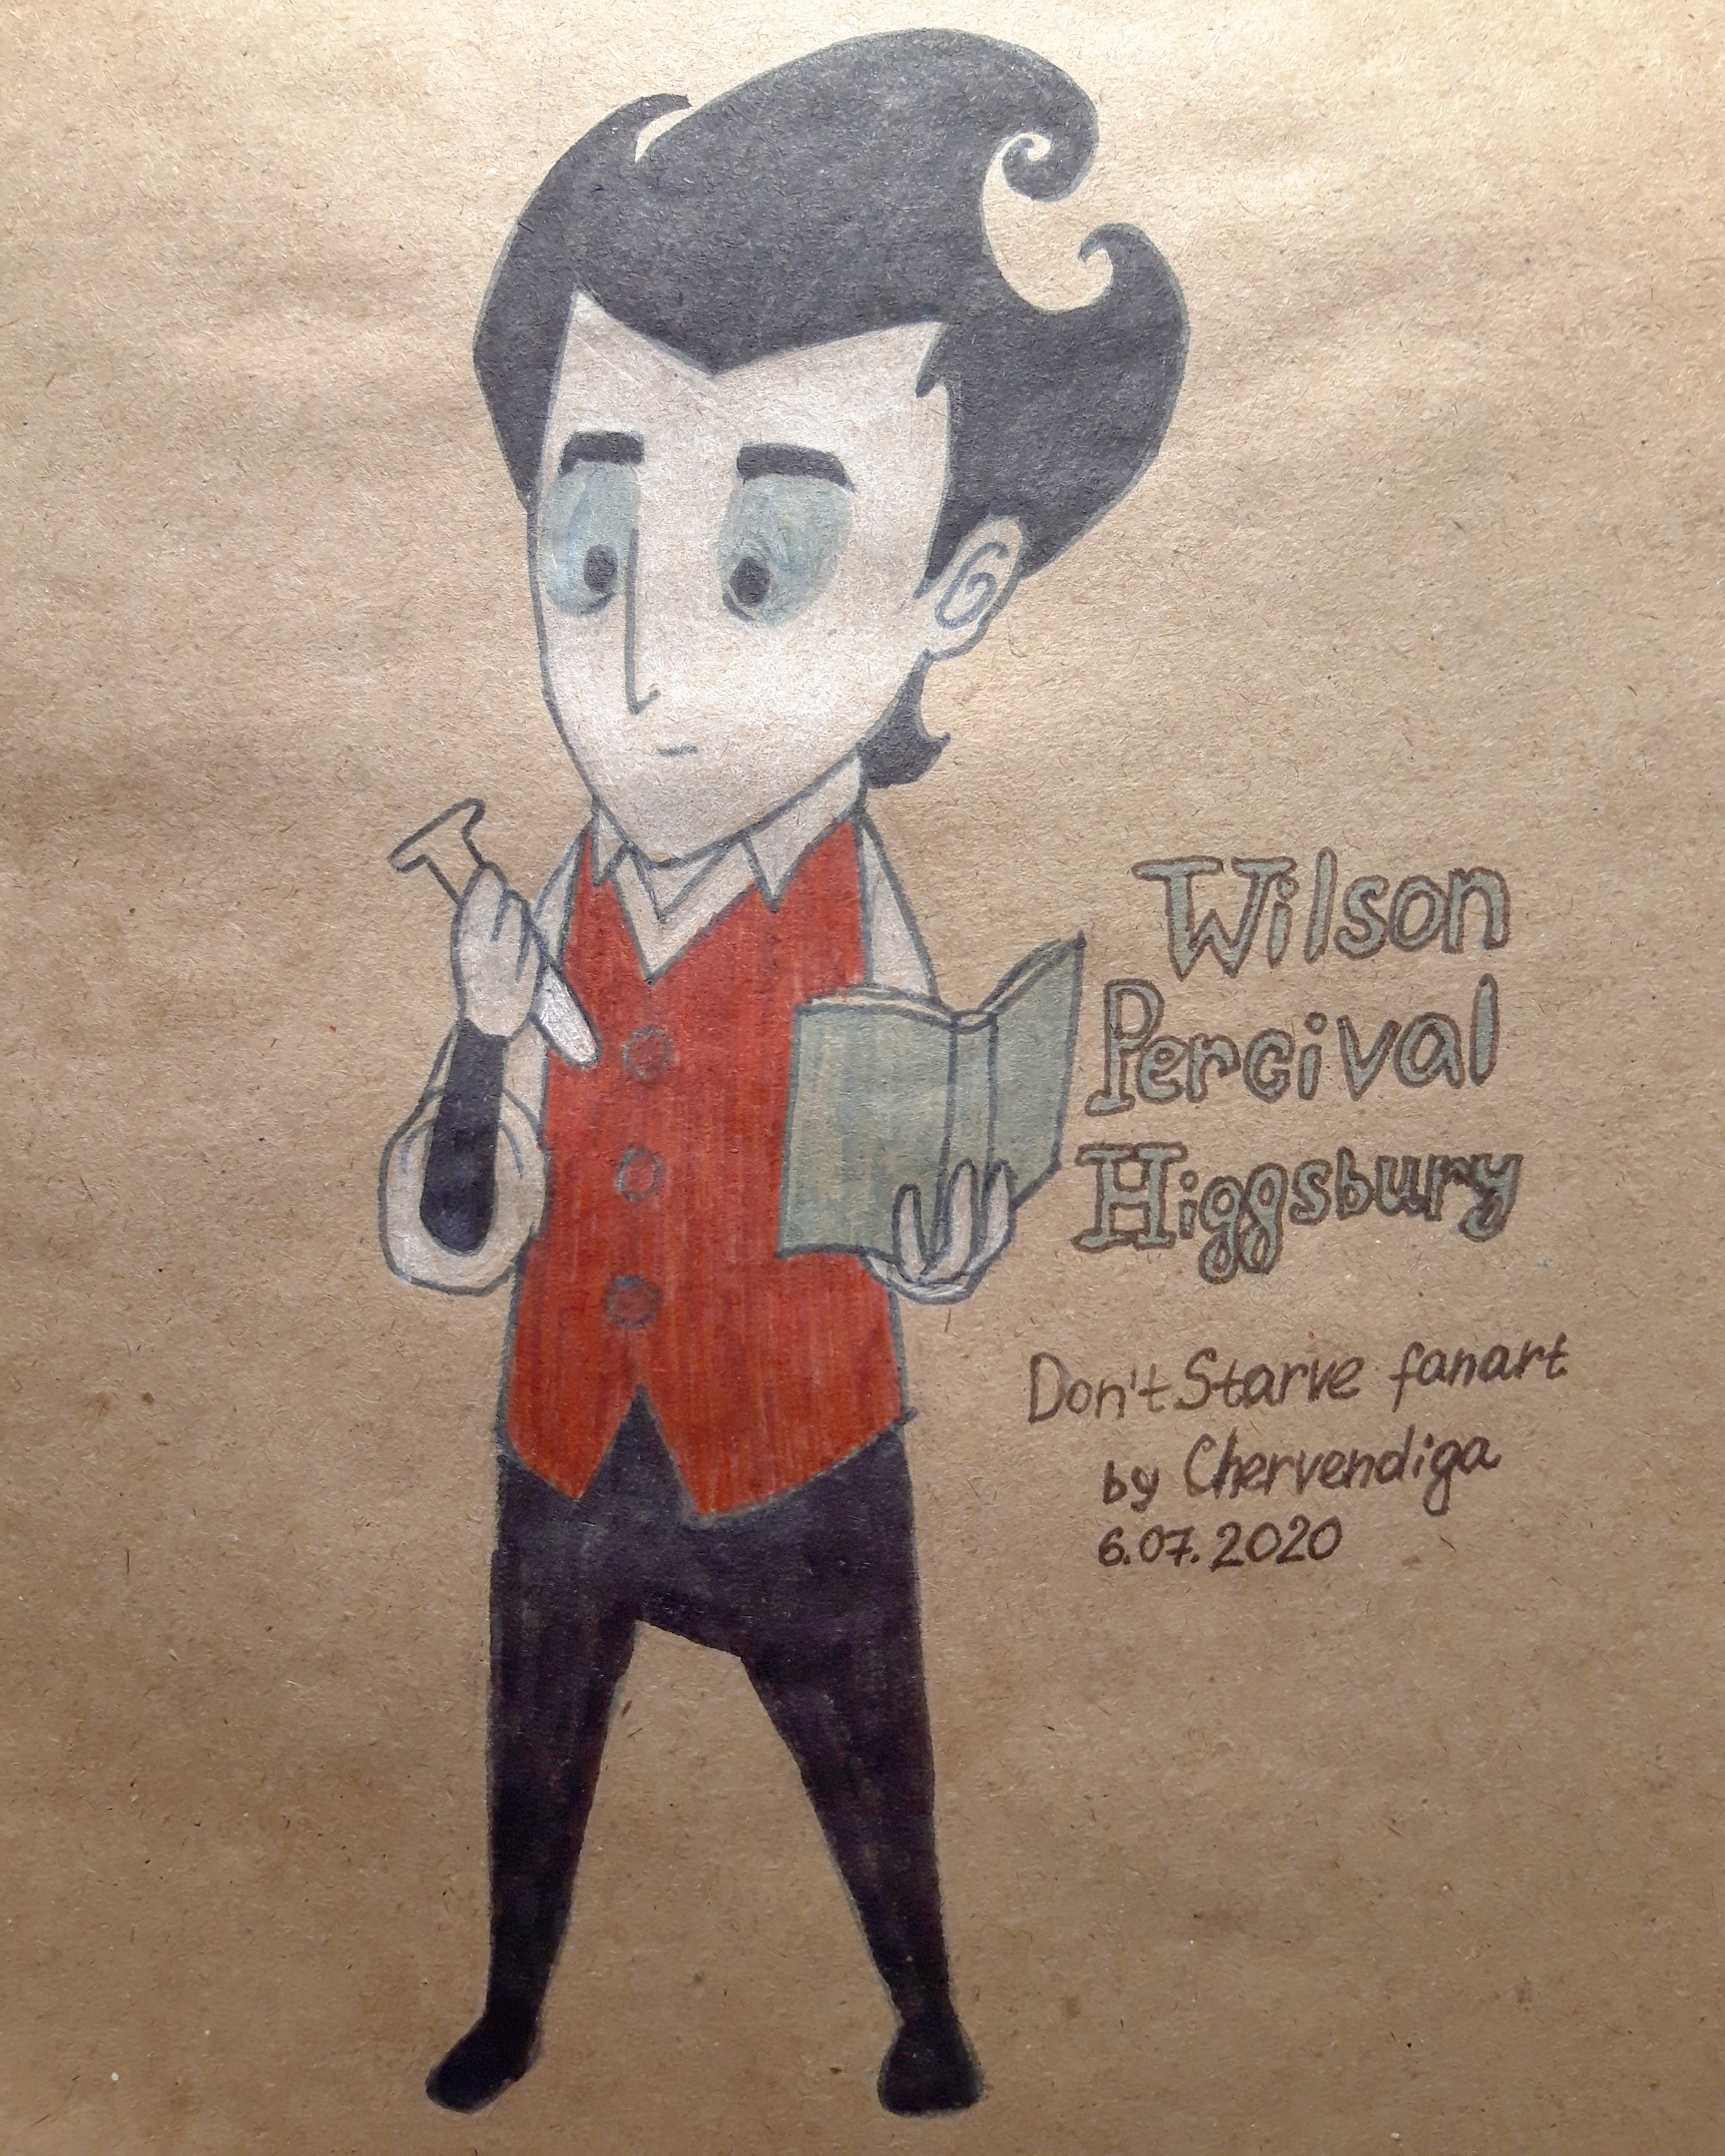 Wilson
Percival
Higgsbury
Don't Starve fanart
by Chervendiga
6.07.2020